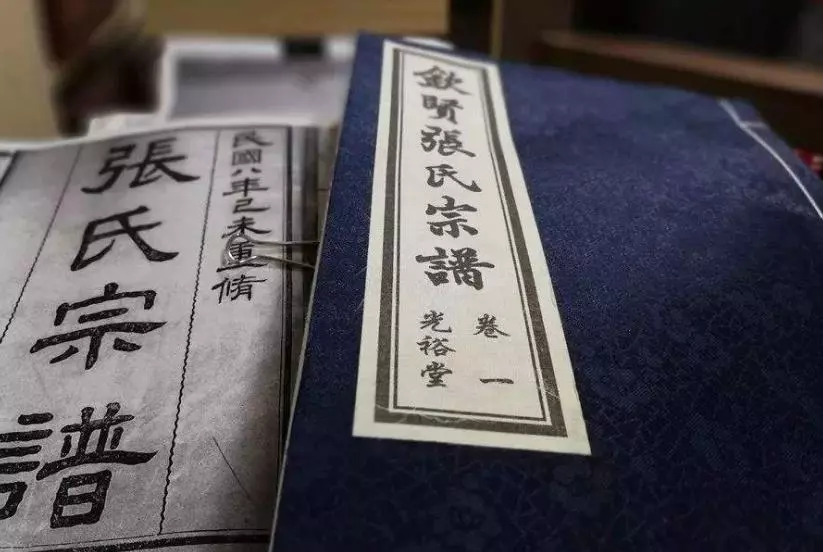 民國八年己未重脩
張氏宗譜
欽賢張氏宗譜
卷一
光裕堂